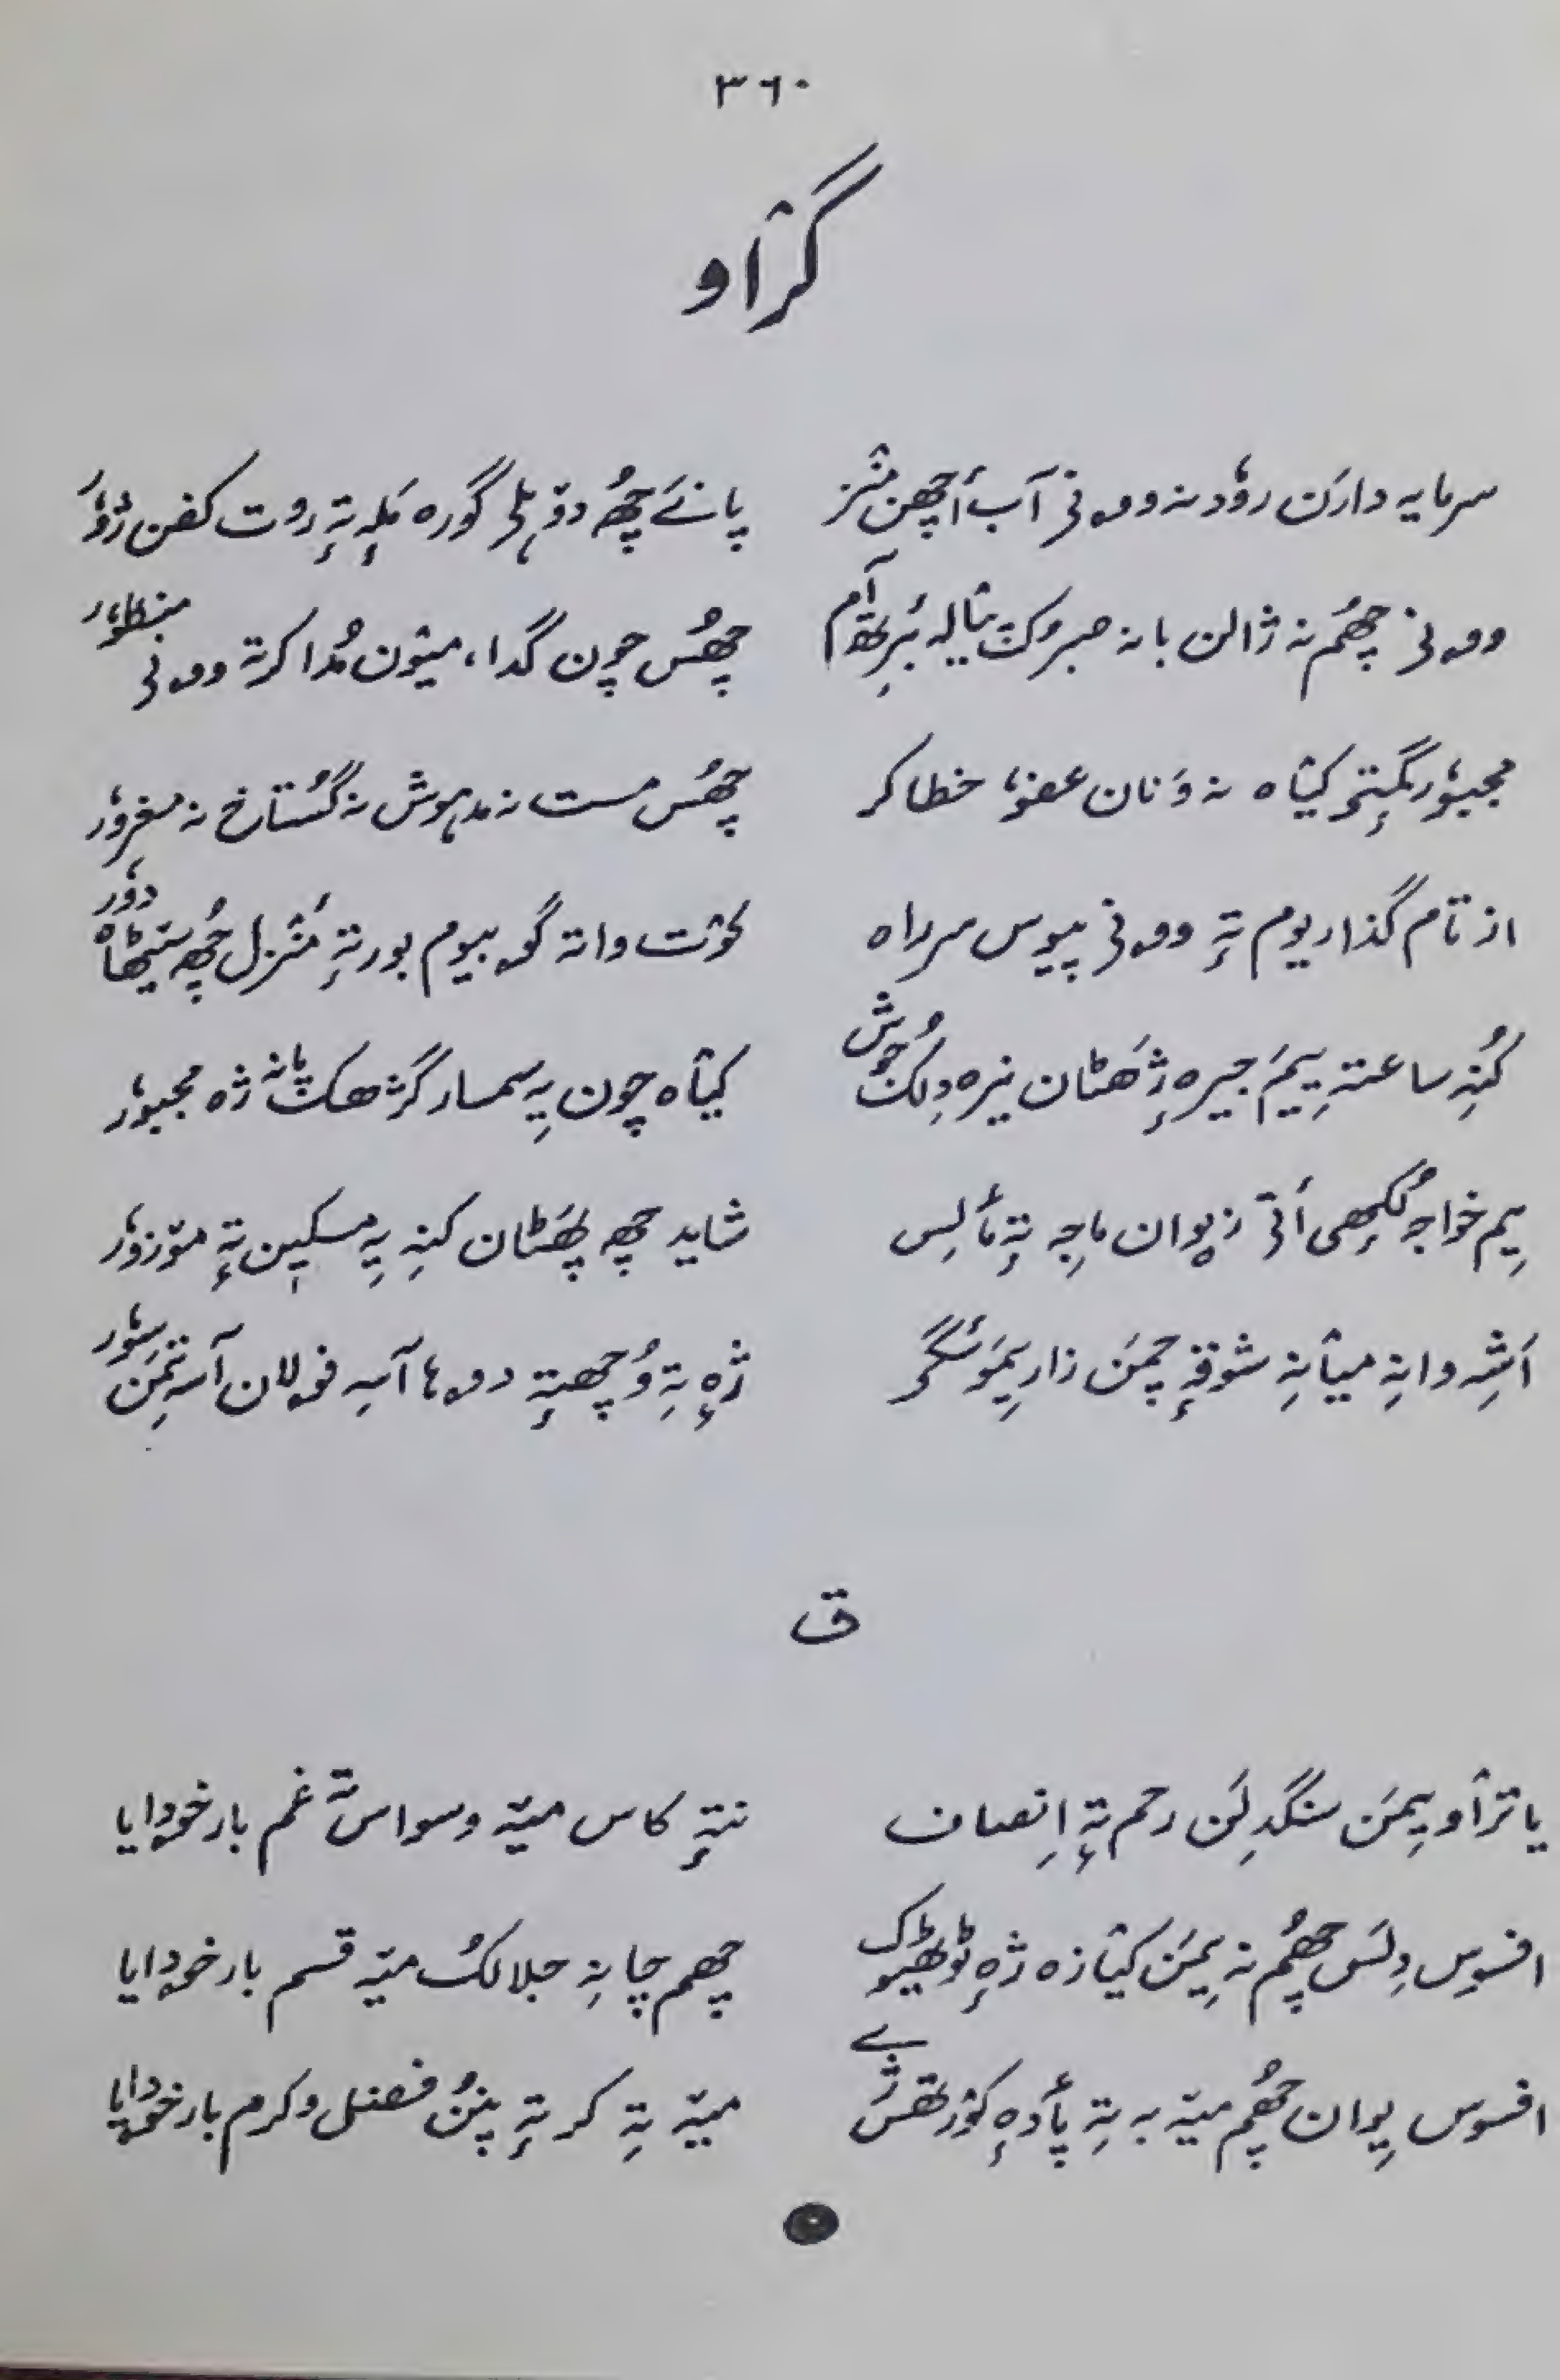 ٣٦٠
گرٛاو
سرمایہ دارَن روٗد نہ وۄنی آب أچھن منٛز پانَے چھُہ دۄہلی گورہ مَلہٕ تہٕ روت کفن ژوٗر
وۄنی چھُم نہ ژالن بانہ صبروکُت پیالہ بُرِتھ آم چھُس چون گدا، میٛون مُدا کرتہ وۄنی منظوٗر
مجبوٗر مگتیو کیٛاہ نہ وَنان عفوٗ خطا کر چھُس مست نہ مدہوش نہ گستاخ نہ مغروٗر
از تام گذاریوم تہٕ وۄنی پیوس سرراہ کھوٚت واتہ گۄبیوم بور تہٕ مَنٛزل چھُہ سیٹھاہ دوٗر
کُنہِ ساعتہ یِیمَ جیرہ ژھٕٹان نیرہ دِلُک جوش کیٛاہ چون یہِ سمسار گژھکھ پانہ ژہ مجبوٗر
یِم خواجہ لُکھی أتی زِیوان ماجہ تہٕ مألِس شاید چھِ پھَٹان کنہِ یہِ مسکین تہٕ موٚزوٗر
اَشہِ دانہِ میٛانہِ شوقہٕ چمَن زار یِمَو سٔگی ژٕہ تہِ وُچھتہٕ دۄہا آسہِ فۄلان آسہ تِمَن سوٗر
ق
یا ترٛاو یِمَن سنگدِلَن رحم تہٕ اِنصاف نتہٕ کاس میٚہ وسواس تہٕ غم بار خۄدایا
افسوس دِلَس چھُم نہ یِمَن کیٛازہ ژٕہ ٹوٹھیوک چھم چانہِ جلالُک میٚہ قسم بار خۄدایا
افسوس یِوان چھُم میٚہ بہ تہِ پأدہٕ کوٚرتھس ژےٚ میٚہ تہِ کر تہٕ پنُن فضل و کرم بار خۄدایا